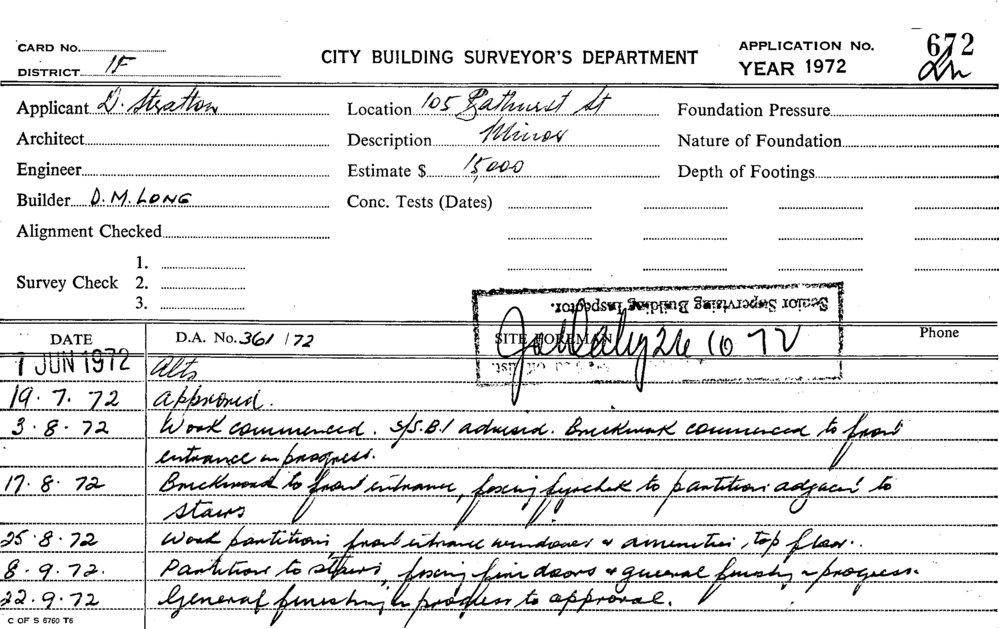 CARD No.
DISTRICT 1F
CITY BUILDING SURVEYOR'S DEPARTMENT
APPLICATION No. 672
YEAR 1972
Applicant D. Stratton
Location 105 Bathurst St
Foundation Pressure
Architect
Description Minor
Nature of Foundation
Engineer
Estimate $ 15,000
Depth of Footings
Builder D.M. LONG
Conc. Tests (Dates)
Alignment Checked
Survey Check
1.
2.
3.
Senior Supervising Building Inspector.
DATE
D.A. No. 361/72
SITE FOREMAN
26 10 72
Phone
7 JUN 1972 Alts
19.7.72 approved.
3.8.72 Work commenced. S/S.B.I advised. Brickwork commenced to front
entrance in progress.
17.8.72 Brickwork to front entrance, fixing fyrchek to partition adjacent to
stairs
25.8.72 Work partitions front entrance windows & amenities, top floor.
8.9.72. Partitions to stairs, fixing fire doors & general finishing in progress.
22.9.72 General finishing in progress to approval.
C OF S 6760 T6